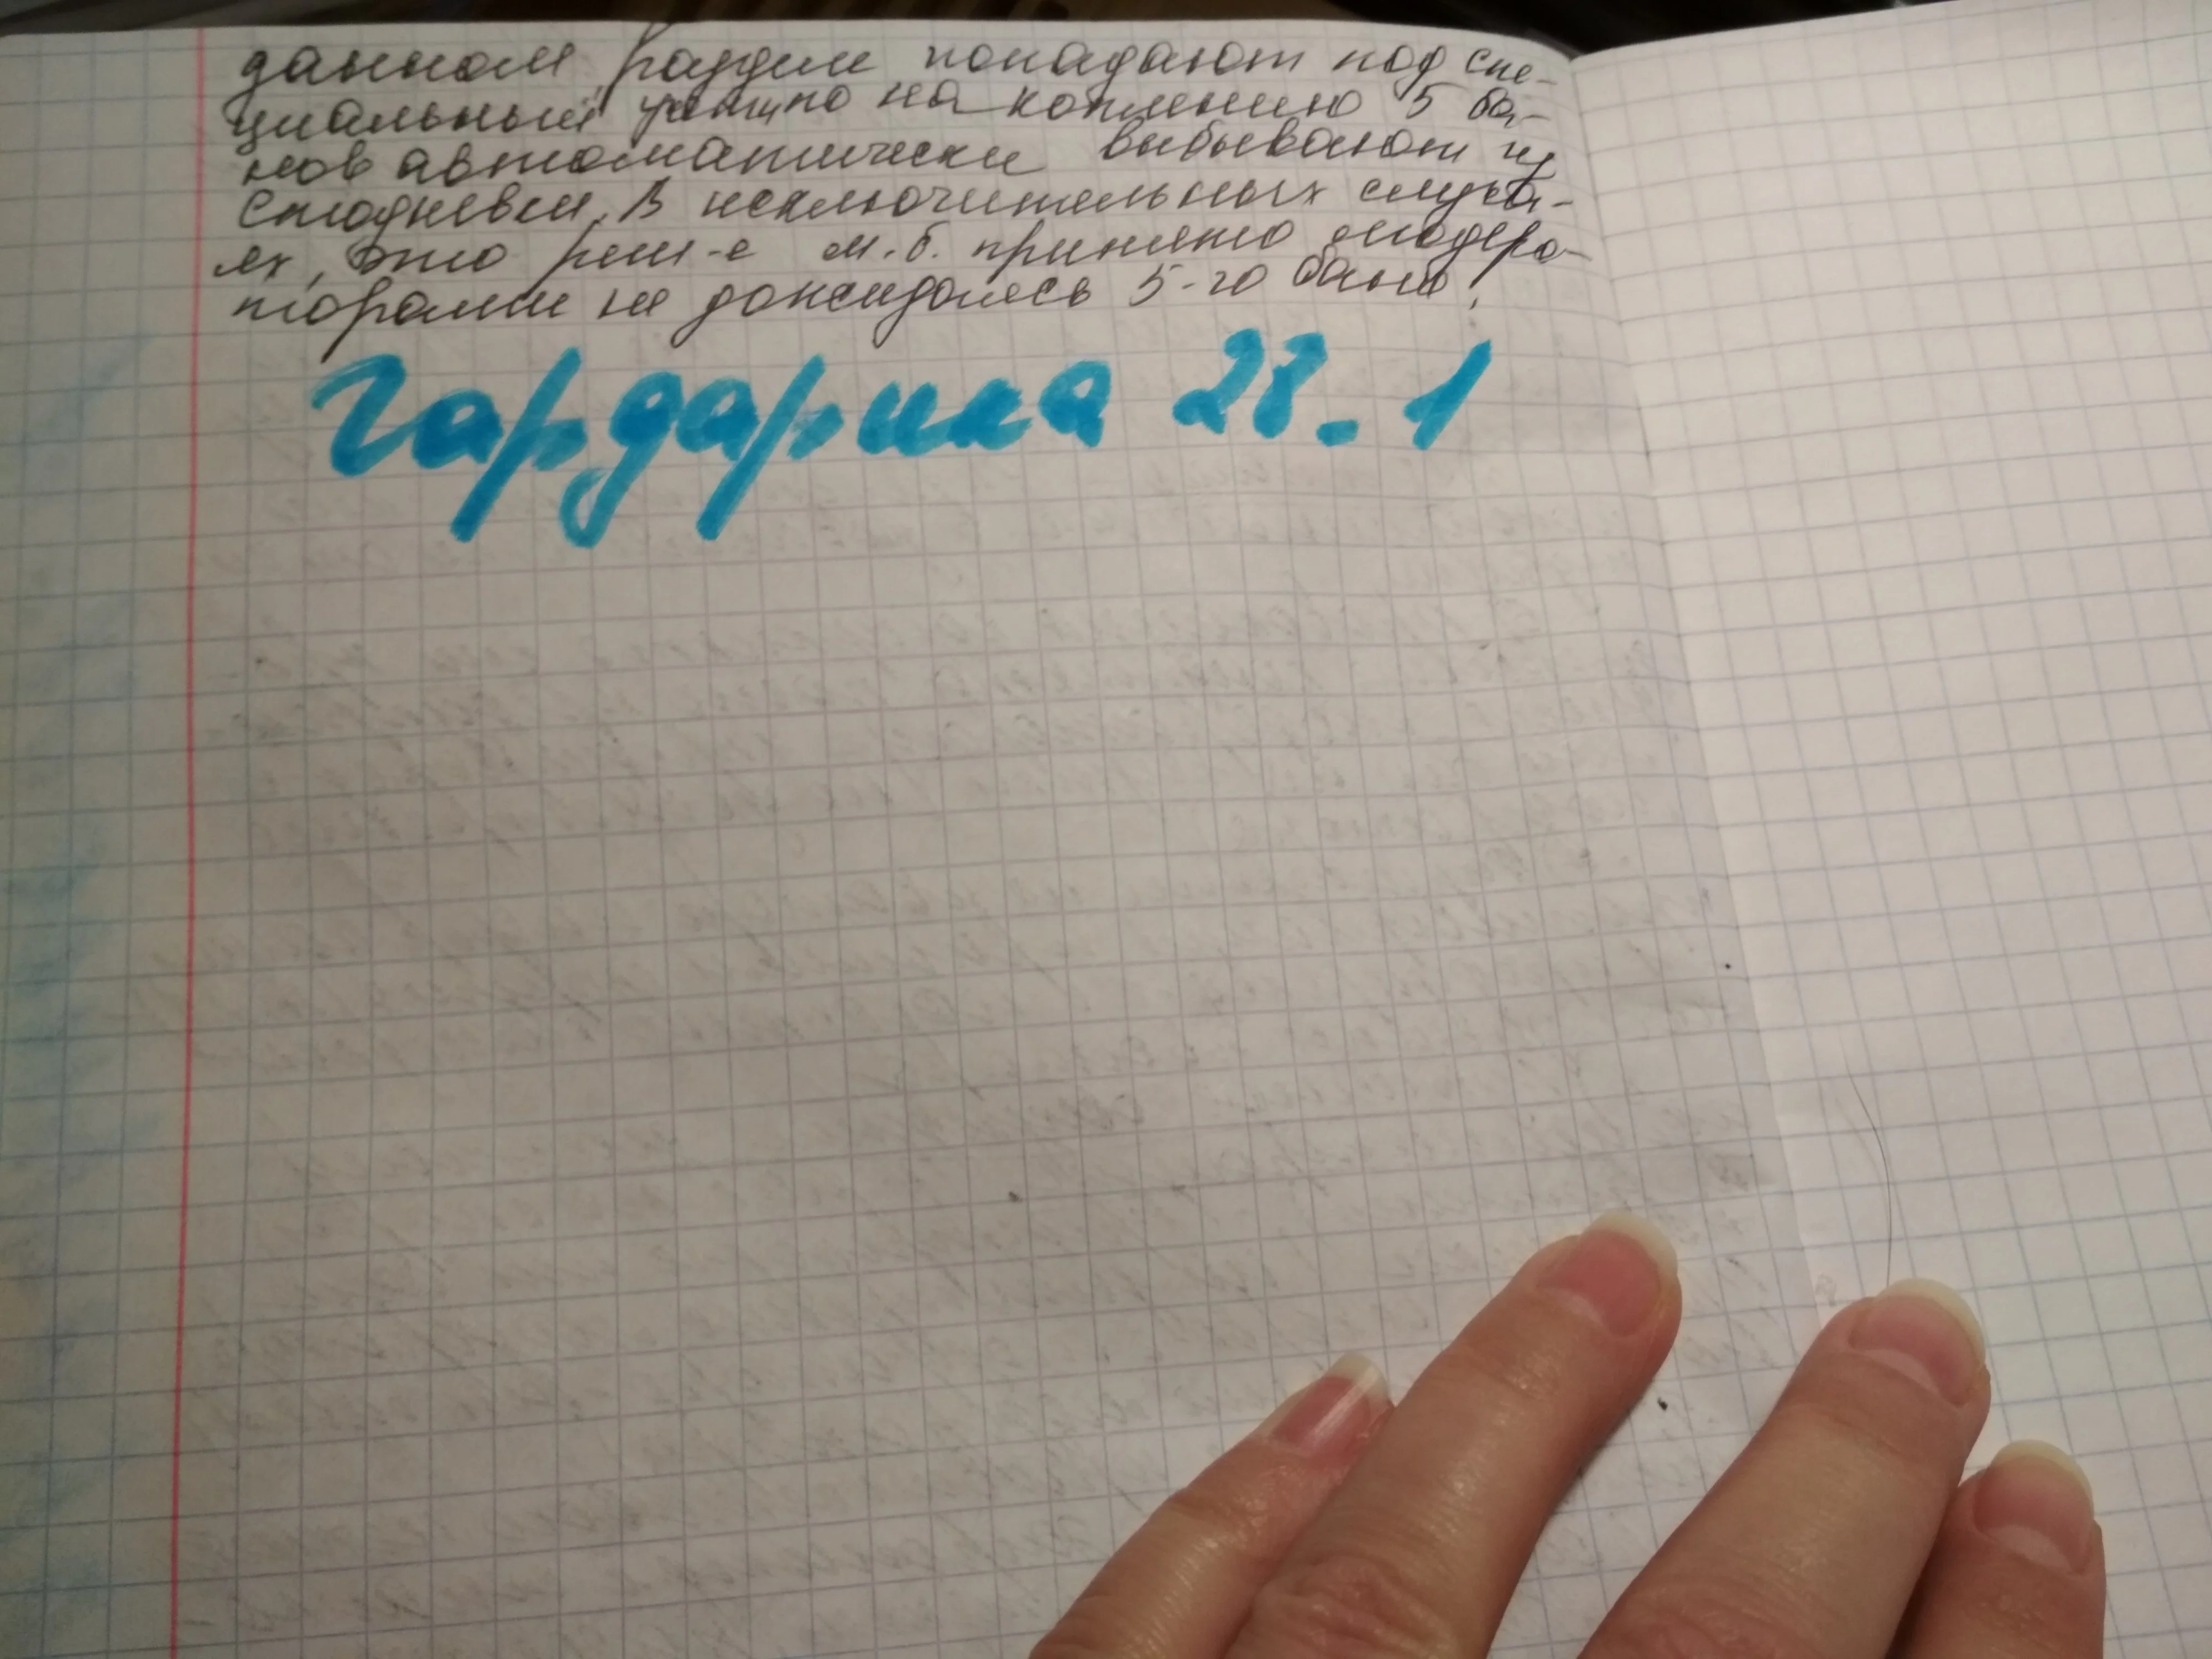 данном разделе попадают под спе-
циальный учет, по накоплению 5 ба-
нов автоматически выбывают из
Стодневки. В исключительных случа-
ях, это реш-е м.б. принято модера-
торами не дожидаясь 5-го бана!
Гардарика 28.1